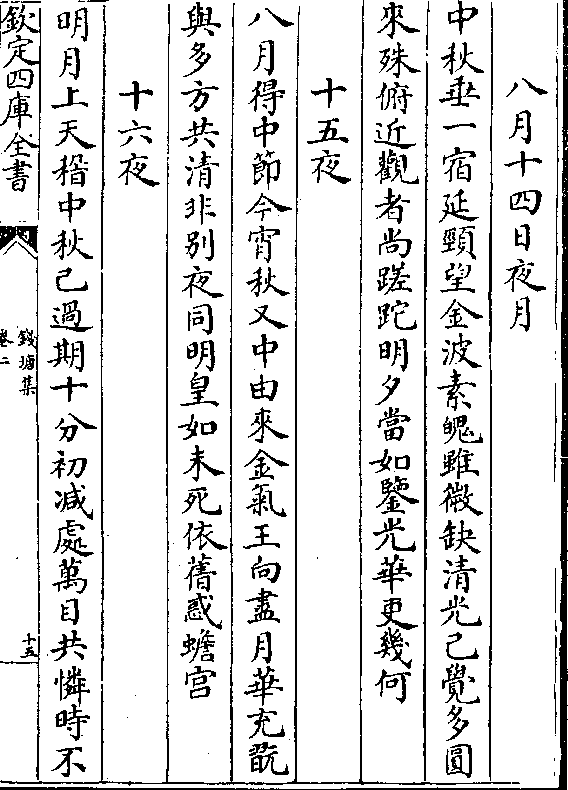 八月十四日夜月
中秋垂一宿延頸望金波素魄雖微缺清光已覺多圓
來殊俯近觀者尚蹉跎明夕當如鑒光華更幾何
十五夜
八月得中節今宵秋又中由來金氣王向盡月華充翫
與多方共清非别夜同明皇如未死依舊惑蟾宫
十六夜
明月上天稽中秋已過期十分初减處萬目共憐時不
欽定四庫全書
錢塘集
卷二
十五